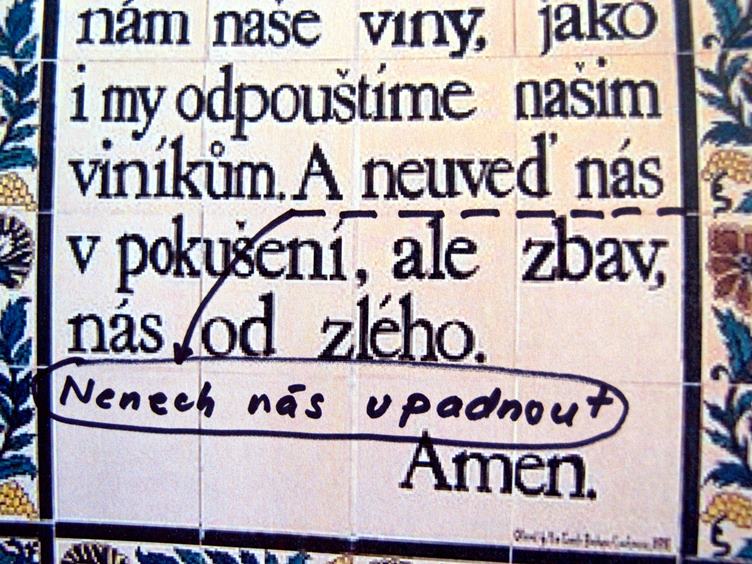 nám naše viny, jako
i my odpouštíme našim
viníkům. A neuveď nás
v pokušení, ale zbav,
nás od zlého.
Nenech nás upadnout
Amen.